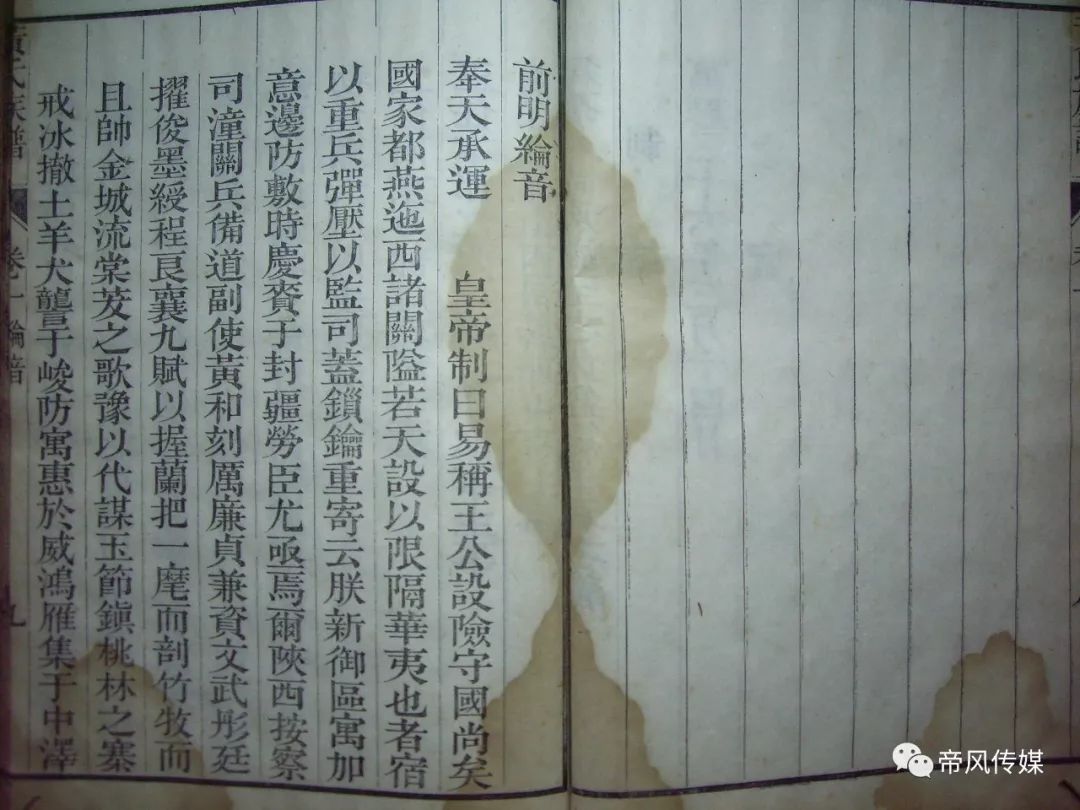 前明綸音
奉天承運 皇帝制曰易稱王公設險守國尚矣
國家都燕迤西諸關隘若天設以限隔華夷也者宿
以重兵彈壓以監司蓋鎖鑰重寄云朕新御區寓加
意邊防敷時慶賚于封疆勞臣尤亟焉爾陝西按察
司潼關兵備道副使黃和刻厲廉貞兼資文武彤廷
擢俊墨綬程艮襄九賦以握蘭把一麾而剖竹牧而
且帥金城流棠茇之歌豫以代謀玉節鎭桃林之寨
戒冰撤土羊犬讋于峻防寓惠於威鴻雁集于中澤
黃氏族譜 卷一 綸音 九
帝风传媒